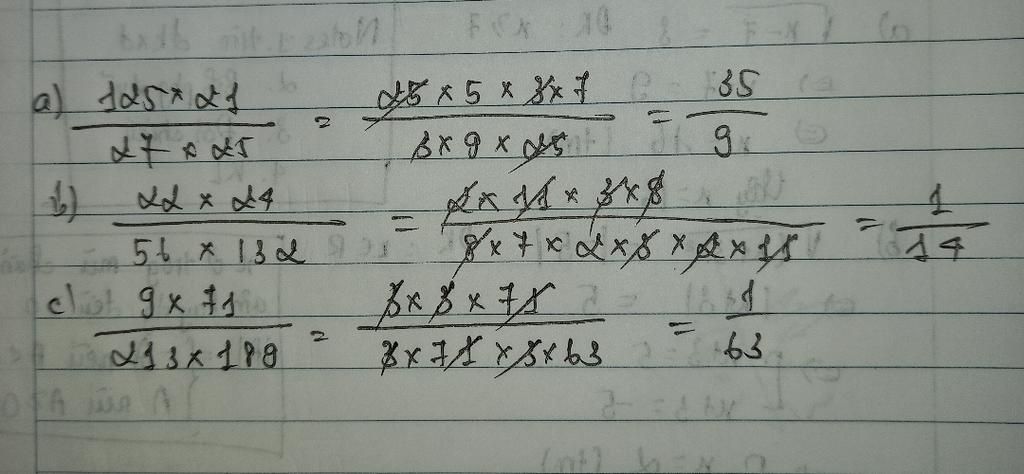 a) 125 × 21 / 27 × 25 = 25 × 5 × 3 × 7 / 3 × 9 × 25 = 35 / 9
b) 22 × 24 / 56 × 132 = 2 × 11 × 3 × 8 / 8 × 7 × 2 × 3 × 2 × 11 = 1 / 14
c) 9 × 71 / 213 × 189 = 3 × 3 × 71 / 3 × 71 × 3 × 63 = 1 / 63